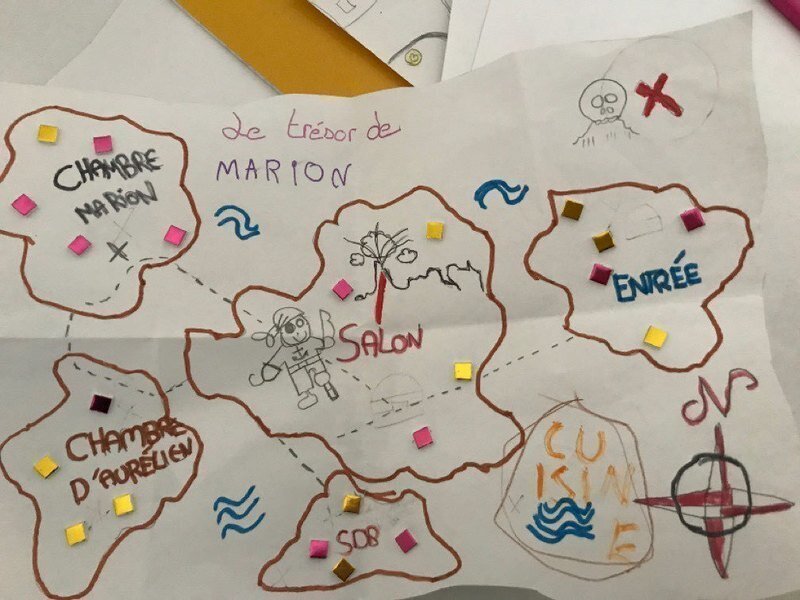 Le trésor de
MARION
CHAMBRE
MARION
SALON
ENTRÉE
CHAMBRE
D'AURÉLIEN
SDB
CU
ISIN
E
N